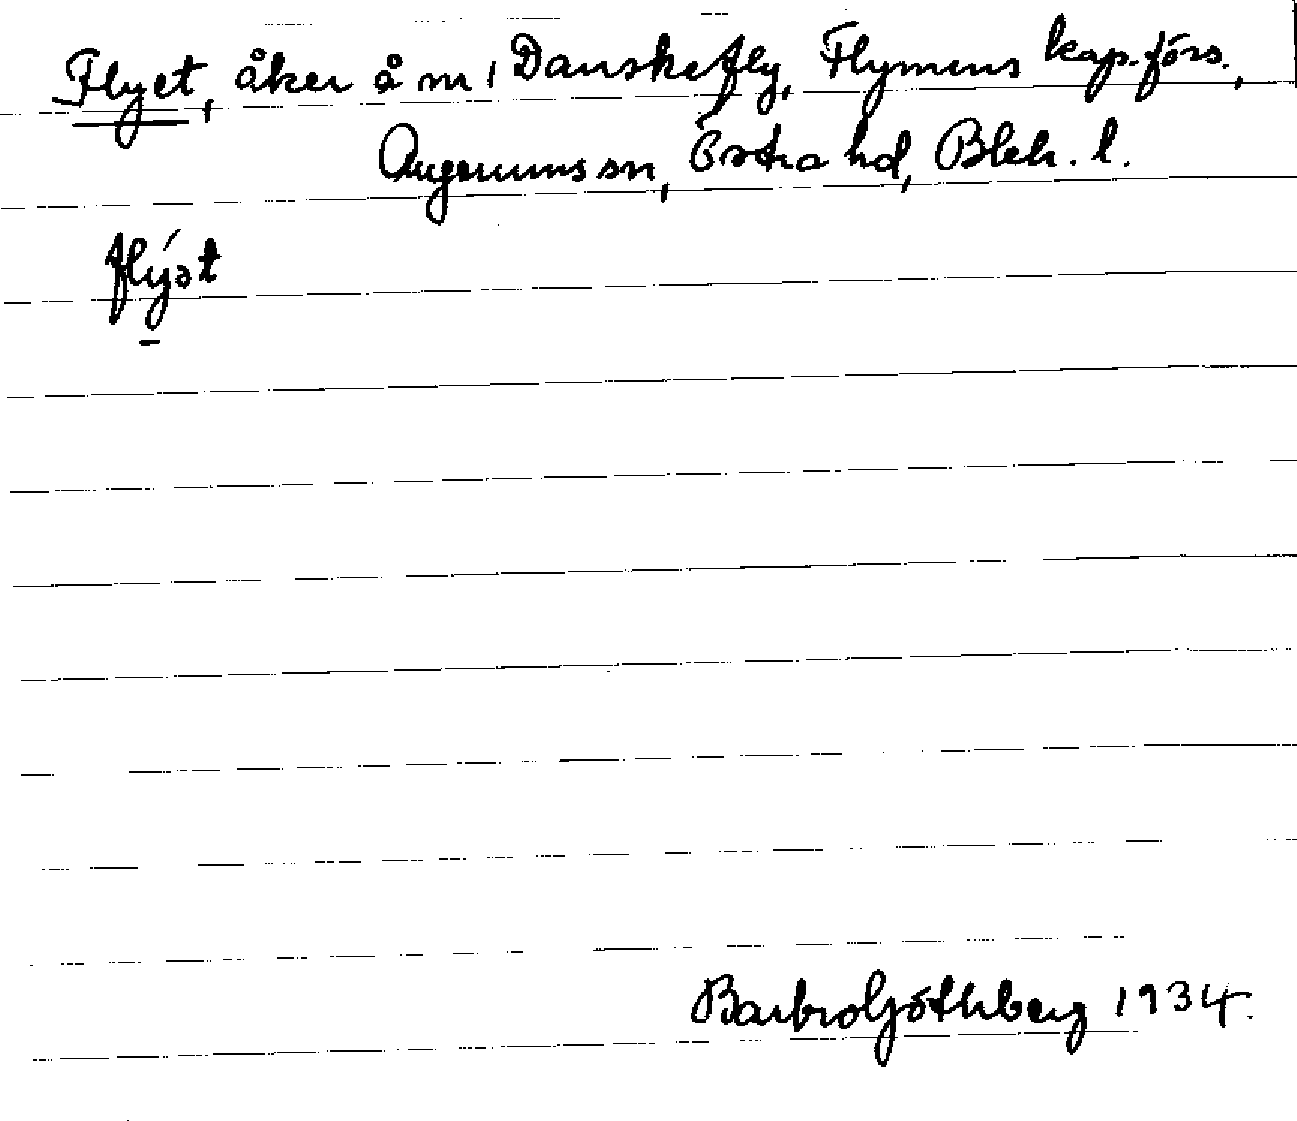 Flyet, åker å m, Danskefly, Flymens kap.förs.,
Augerums sn, Östra hd, Blek. l.
flýət
Barbro Göthberg 1934.